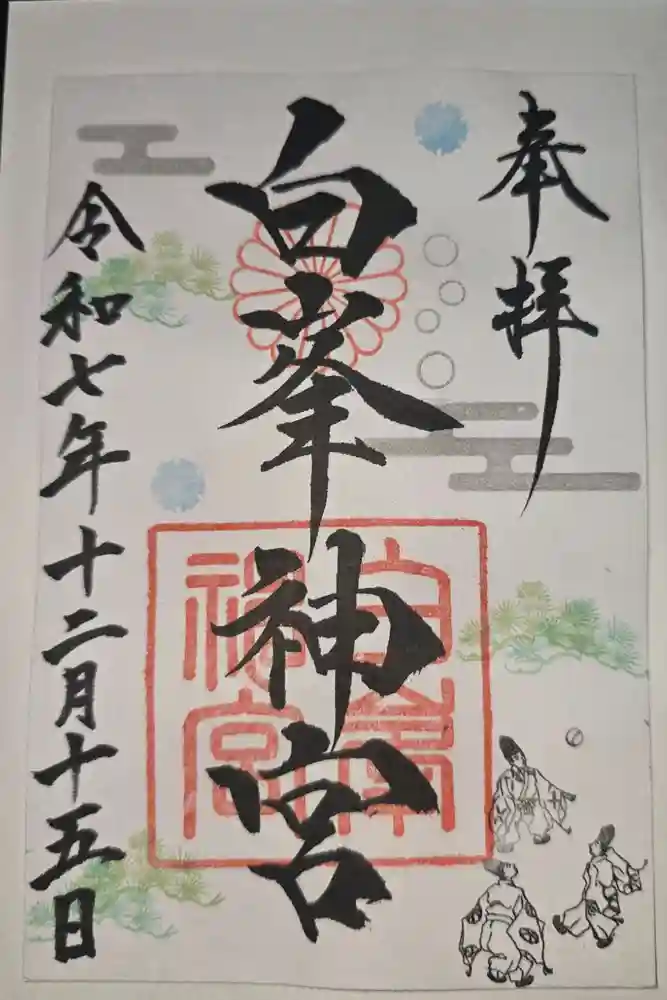 奉拝
白峯神宮
白峯
神宮
令和七年十二月十五日